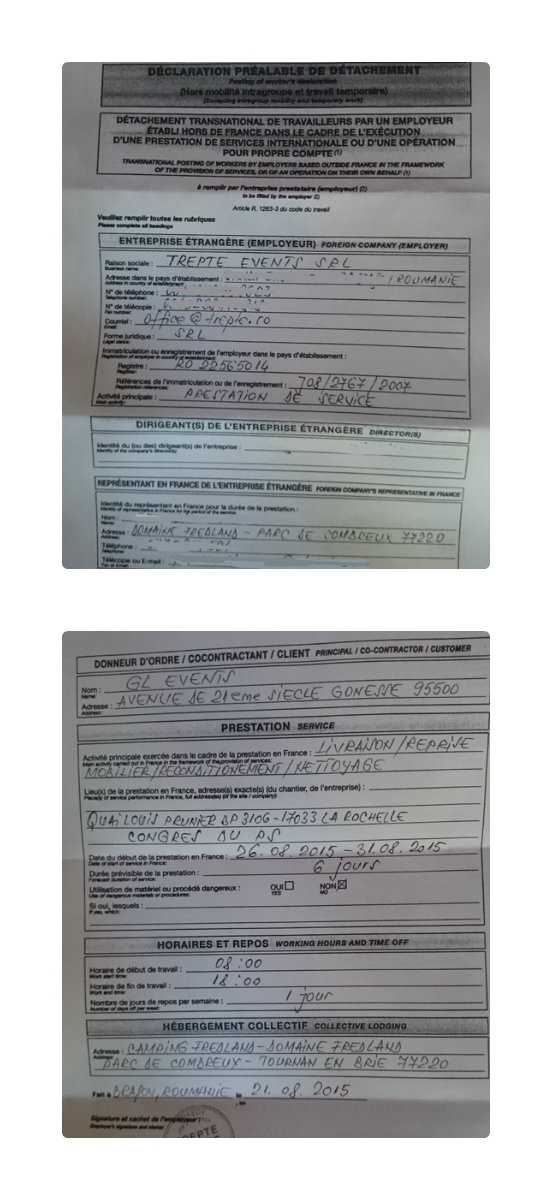 DÉCLARATION PRÉALABLE DE DÉTACHEMENT
Posting of worker's declaration
(Hors mobilité intragroupe et travail temporaire)
(Excepting intragroup mobility and temporary work)
DÉTACHEMENT TRANSNATIONAL DE TRAVAILLEURS PAR UN EMPLOYEUR
ÉTABLI HORS DE FRANCE DANS LE CADRE DE L'EXÉCUTION
D'UNE PRESTATION DE SERVICES INTERNATIONALE OU D'UNE OPÉRATION
POUR PROPRE COMPTE (1)
TRANSNATIONAL POSTING OF WORKERS BY EMPLOYERS BASED OUTSIDE FRANCE IN THE FRAMEWORK
OF THE PROVISION OF SERVICES, OR OF AN OPERATION ON THEIR OWN BEHALF (1)
à remplir par l'entreprise prestataire (employeur) (2)
to be filled by the employer (2)
Article R. 1263-3 du code du travail
Veuillez remplir toutes les rubriques
Please complete all headings
ENTREPRISE ÉTRANGÈRE (EMPLOYEUR) FOREIGN COMPANY (EMPLOYER)
Raison sociale : TREPTE EVENTS SRL
Business name:
Adresse dans le pays d'établissement : / ROUMANIE
Address in country of establishment:
N° de téléphone :
Telephone number:
N° de télécopie :
Fax number:
Courriel : office@trepte.ro
Email:
Forme juridique : SRL
Legal status:
Immatriculation ou enregistrement de l'employeur dans le pays d'établissement :
Registration of employer in country of establishment:
Registre : RO 22565014
Register:
Références de l'immatriculation ou de l'enregistrement : J08/2767/2007
Registration references:
Activité principale : PRESTATION DE SERVICE
Main activity:
DIRIGEANT(S) DE L'ENTREPRISE ÉTRANGÈRE DIRECTOR(S)
Identité du (ou des) dirigeant(s) de l'entreprise :
Identity of the company's director(s):
REPRÉSENTANT EN FRANCE DE L'ENTREPRISE ÉTRANGÈRE FOREIGN COMPANY'S REPRESENTATIVE IN FRANCE
Identité du représentant en France pour la durée de la prestation :
Identity of representative in France for the period of the service:
Nom :
Name:
Adresse : DOMAINE FREDLAND - PARC DE COMBREUX 77220
Address:
Téléphone :
Telephone:
Télécopie ou E-mail :
Fax or Email:
DONNEUR D'ORDRE / COCONTRACTANT / CLIENT PRINCIPAL / CO-CONTRACTOR / CUSTOMER
Nom : GL EVENTS
Name:
Adresse : AVENUE DE 21eme SIECLE GONESSE 95500
Address:
PRESTATION SERVICE
Activité principale exercée dans le cadre de la prestation en France : LIVRAISON/REPRISE
Main activity carried out in France in the framework of the provision of services:
MOBILIER/RECONDITIONEMENT/NETTOYAGE
Lieu(x) de la prestation en France, adresse(s) exacte(s) (du chantier, de l'entreprise) :
Place(s) of service performance in France, full address(es) (of the site / company):
QUAI LOUIS PRUNIER BP 3106 - 17033 LA ROCHELLE
CONGRES DU PS
Date du début de la prestation en France : 26.08.2015 - 31.08.2015
Date of start of service in France:
Durée prévisible de la prestation : 6 jours
Forecast duration of service:
Utilisation de matériel ou procédé dangereux : OUI NON
Use of dangerous materials or procedures: YES NO
Si oui, lesquels :
If yes, which:
HORAIRES ET REPOS WORKING HOURS AND TIME OFF
Horaire de début de travail : 08:00
Work start time:
Horaire de fin de travail : 18:00
Work end time:
Nombre de jours de repos par semaine : 1 jour
Number of days off per week:
HÉBERGEMENT COLLECTIF COLLECTIVE LODGING
Adresse : CAMPING FREDLAND - DOMAINE FREDLAND
Address:
PARC DE COMBREUX - TOURNAN EN BRIE 77220
Fait à BRASOV, ROUMANIE le 21.08.2015
Signature et cachet de l'employeur :
Employer's signature and stamp: